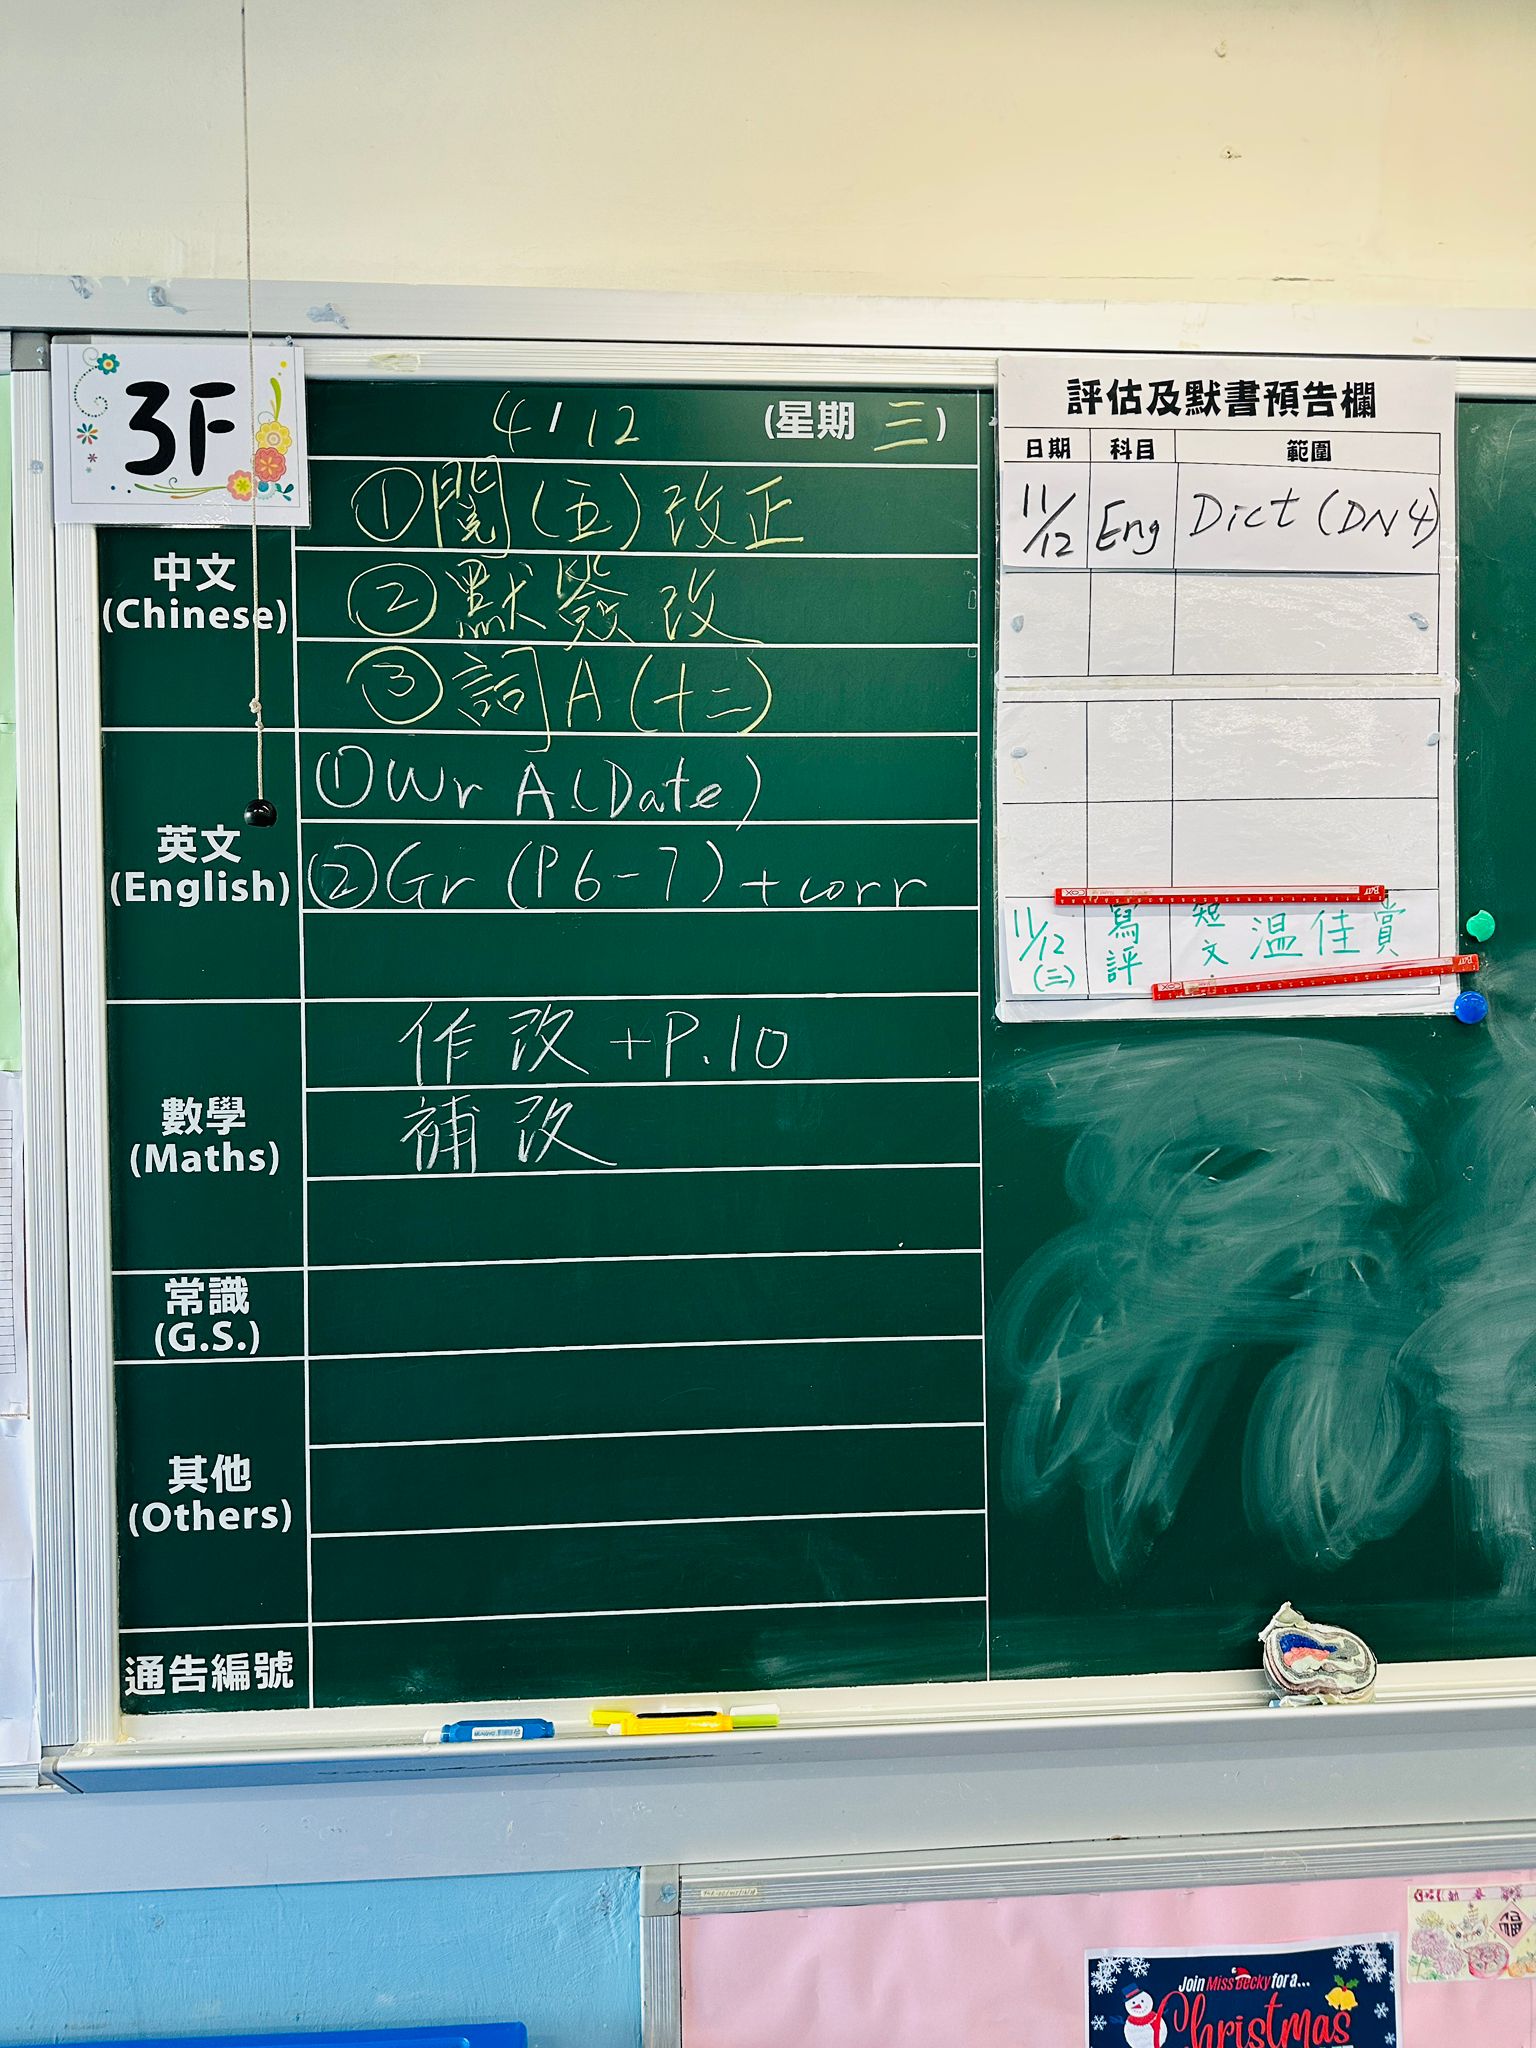 3F
4/12 (星期三)
中文
(Chinese)
①閱(五)改正
②默簽改
③詞A(十二)
英文
(English)
①Wr A(Date)
②Gr (P6-7)+corr
數學
(Maths)
作改+P.10
補改
常識
(G.S.)
其他
(Others)
通告編號
評估及默書預告欄
日期 科目 範圍
11/12 Eng Dict (DN4)
11/12(三) 寫評 短文 温佳賞
Join Miss Becky for a...
Christmas
福